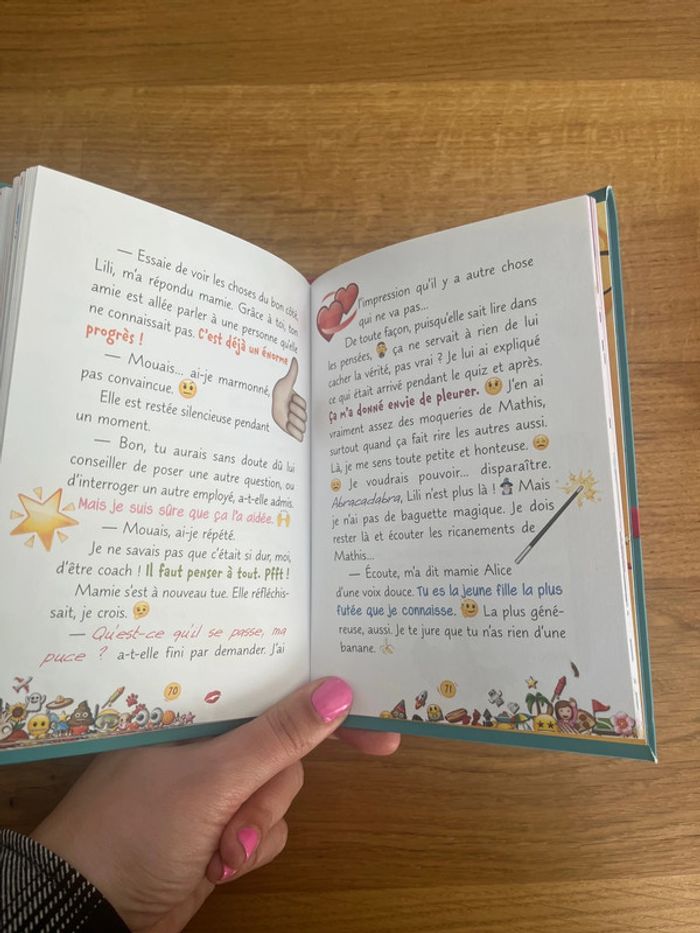 — Essaie de voir les choses du bon côté,
Lili, m'a répondu mamie. Grâce à toi, ton
amie est allée parler à une personne qu'elle
ne connaissait pas. C'est déjà un énorme
progrès !
— Mouais... ai-je marmonné,
pas convaincue.
Elle est restée silencieuse pendant
un moment.
— Bon, tu aurais sans doute dû lui
conseiller de poser une autre question, ou
d'interroger un autre employé, a-t-elle admis.
Mais je suis sûre que ça l'a aidée.
— Mouais, ai-je répété.
Je ne savais pas que c'était si dur, moi,
d'être coach ! Il faut penser à tout. Pfft !
Mamie s'est à nouveau tue. Elle réfléchis-
sait, je crois.
— Qu'est-ce qu'il se passe, ma
puce ? a-t-elle fini par demander. J'ai
70
l'impression qu'il y a autre chose
qui ne va pas...
De toute façon, puisqu'elle sait lire dans
les pensées, ça ne servait à rien de lui
cacher la vérité, pas vrai ? Je lui ai expliqué
ce qui était arrivé pendant le quiz et après.
Ça m'a donné envie de pleurer. J'en ai
vraiment assez des moqueries de Mathis,
surtout quand ça fait rire les autres aussi.
Là, je me sens toute petite et honteuse.
Je voudrais pouvoir... disparaître.
Abracadabra, Lili n'est plus là ! Mais
je n'ai pas de baguette magique. Je dois
rester là et écouter les ricanements de
Mathis...
— Écoute, m'a dit mamie Alice
d'une voix douce. Tu es la jeune fille la plus
futée que je connaisse. La plus géné-
reuse, aussi. Je te jure que tu n'as rien d'une
banane.
71